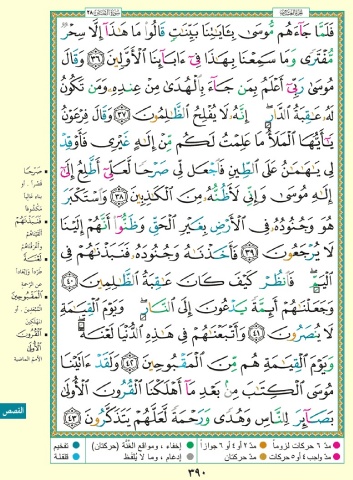 فَلَمَّا جَآءَهُم مُّوسَىٰ بِـَٔايَٰتِنَا بَيِّنَٰتٖ قَالُواْ مَا هَٰذَآ إِلَّا سِحۡرٞ
مُّفۡتَرٗى وَمَا سَمِعۡنَا بِهَٰذَا فِيٓ ءَابَآئِنَا ٱلۡأَوَّلِينَ ٣٦ وَقَالَ
مُوسَىٰ رَبِّيٓ أَعۡلَمُ بِمَن جَآءَ بِٱلۡهُدَىٰ مِنۡ عِندِهِۦ وَمَن تَكُونُ
لَهُۥ عَٰقِبَةُ ٱلدَّارِۚ إِنَّهُۥ لَا يُفۡلِحُ ٱلظَّٰلِمُونَ ٣٧ وَقَالَ فِرۡعَوۡنُ
يَٰٓأَيُّهَا ٱلۡمَلَأُ مَا عَلِمۡتُ لَكُم مِّنۡ إِلَٰهٍ غَيۡرِي فَأَوۡقِدۡ
لِي يَٰهَٰمَٰنُ عَلَى ٱلطِّينِ فَٱجۡعَل لِّي صَرۡحٗا لَّعَلِّيٓ أَطَّلِعُ إِلَىٰٓ
إِلَٰهِ مُوسَىٰ وَإِنِّي لَأَظُنُّهُۥ مِنَ ٱلۡكَٰذِبِينَ ٣٨ وَٱسۡتَكۡبَرَ
هُوَ وَجُنُودُهُۥ فِي ٱلۡأَرۡضِ بِغَيۡرِ ٱلۡحَقِّ وَظَنُّوٓاْ أَنَّهُمۡ إِلَيۡنَا
لَا يُرۡجَعُونَ ٣٩ فَأَخَذۡنَٰهُ وَجُنُودَهُۥ فَنَبَذۡنَٰهُمۡ فِي
ٱلۡيَمِّۖ فَٱنظُرۡ كَيۡفَ كَانَ عَٰقِبَةُ ٱلظَّٰلِمِينَ ٤٠
وَجَعَلۡنَٰهُمۡ أَئِمَّةٗ يَدۡعُونَ إِلَى ٱلنَّارِۖ وَيَوۡمَ ٱلۡقِيَٰمَةِ
لَا يُنصَرُونَ ٤١ وَأَتۡبَعۡنَٰهُمۡ فِي هَٰذِهِ ٱلدُّنۡيَا لَعۡنَةٗۖ
وَيَوۡمَ ٱلۡقِيَٰمَةِ هُم مِّنَ ٱلۡمَقۡبُوحِينَ ٤٢ وَلَقَدۡ ءَاتَيۡنَا
مُوسَى ٱلۡكِتَٰبَ مِنۢ بَعۡدِ مَآ أَهۡلَكۡنَا ٱلۡقُرُونَ ٱلۡأُولَىٰ
بَصَآئِرَ لِلنَّاسِ وَهُدٗى وَرَحۡمَةٗ لَّعَلَّهُمۡ يَتَذَكَّرُونَ ٤٣
صَرْحًا
فَنَبَذْنَاهُمْ
لَعْنَةً
الْمَقْبُوحِينَ
الْقُرُونَ
الْأُولَى
الأمم الماضية
القصص
مدّ ٦ حركات لزوماً
مدّ ٢ أو ٤ أو ٦ جوازاً
إخفاء، ومواقع الغُنَّة (حركتان)
تفخيم
مدّ واجب ٤ أو ٥ حركات
مدّ حركتان
إدغام، وما لا يُلفَظ
قلقلة
٣٩٠